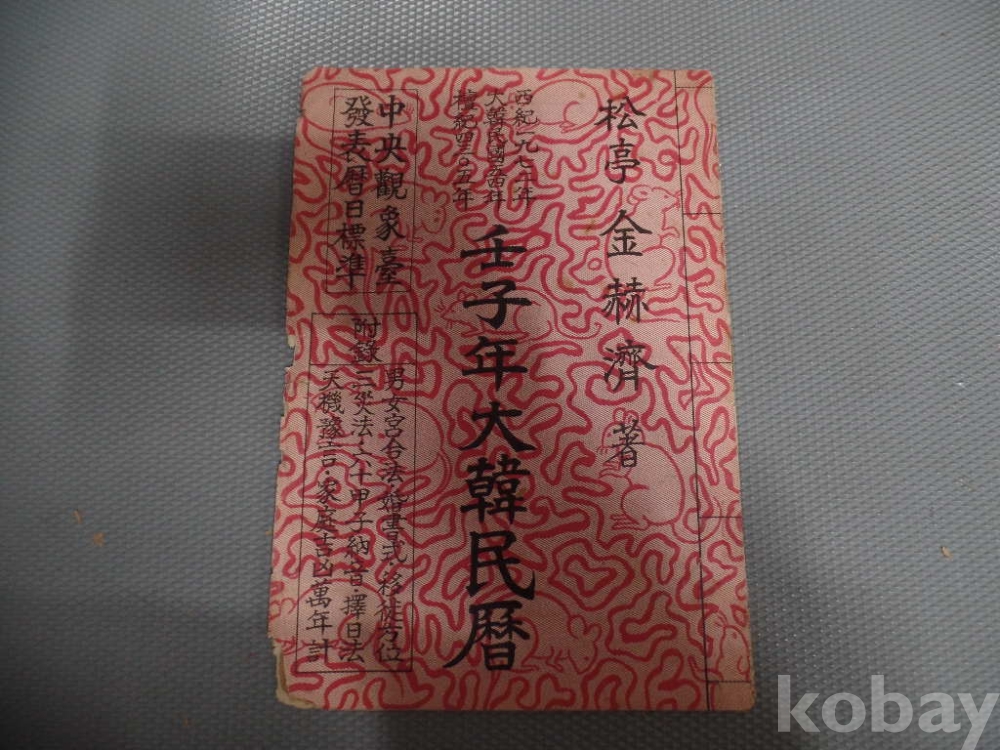 松亭 金赫濟 著
西紀一九七二年
大韓民國
檀紀四三〇五年
壬子年大韓民曆
中央觀象臺
發表曆日標準
附錄
男女宮合法·婚書式·移徙方位
三災法·六十甲子納音·擇日法
天機豫言·家庭吉凶萬年計
kobay